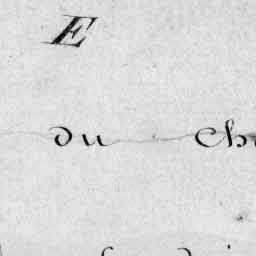 E
du Ch